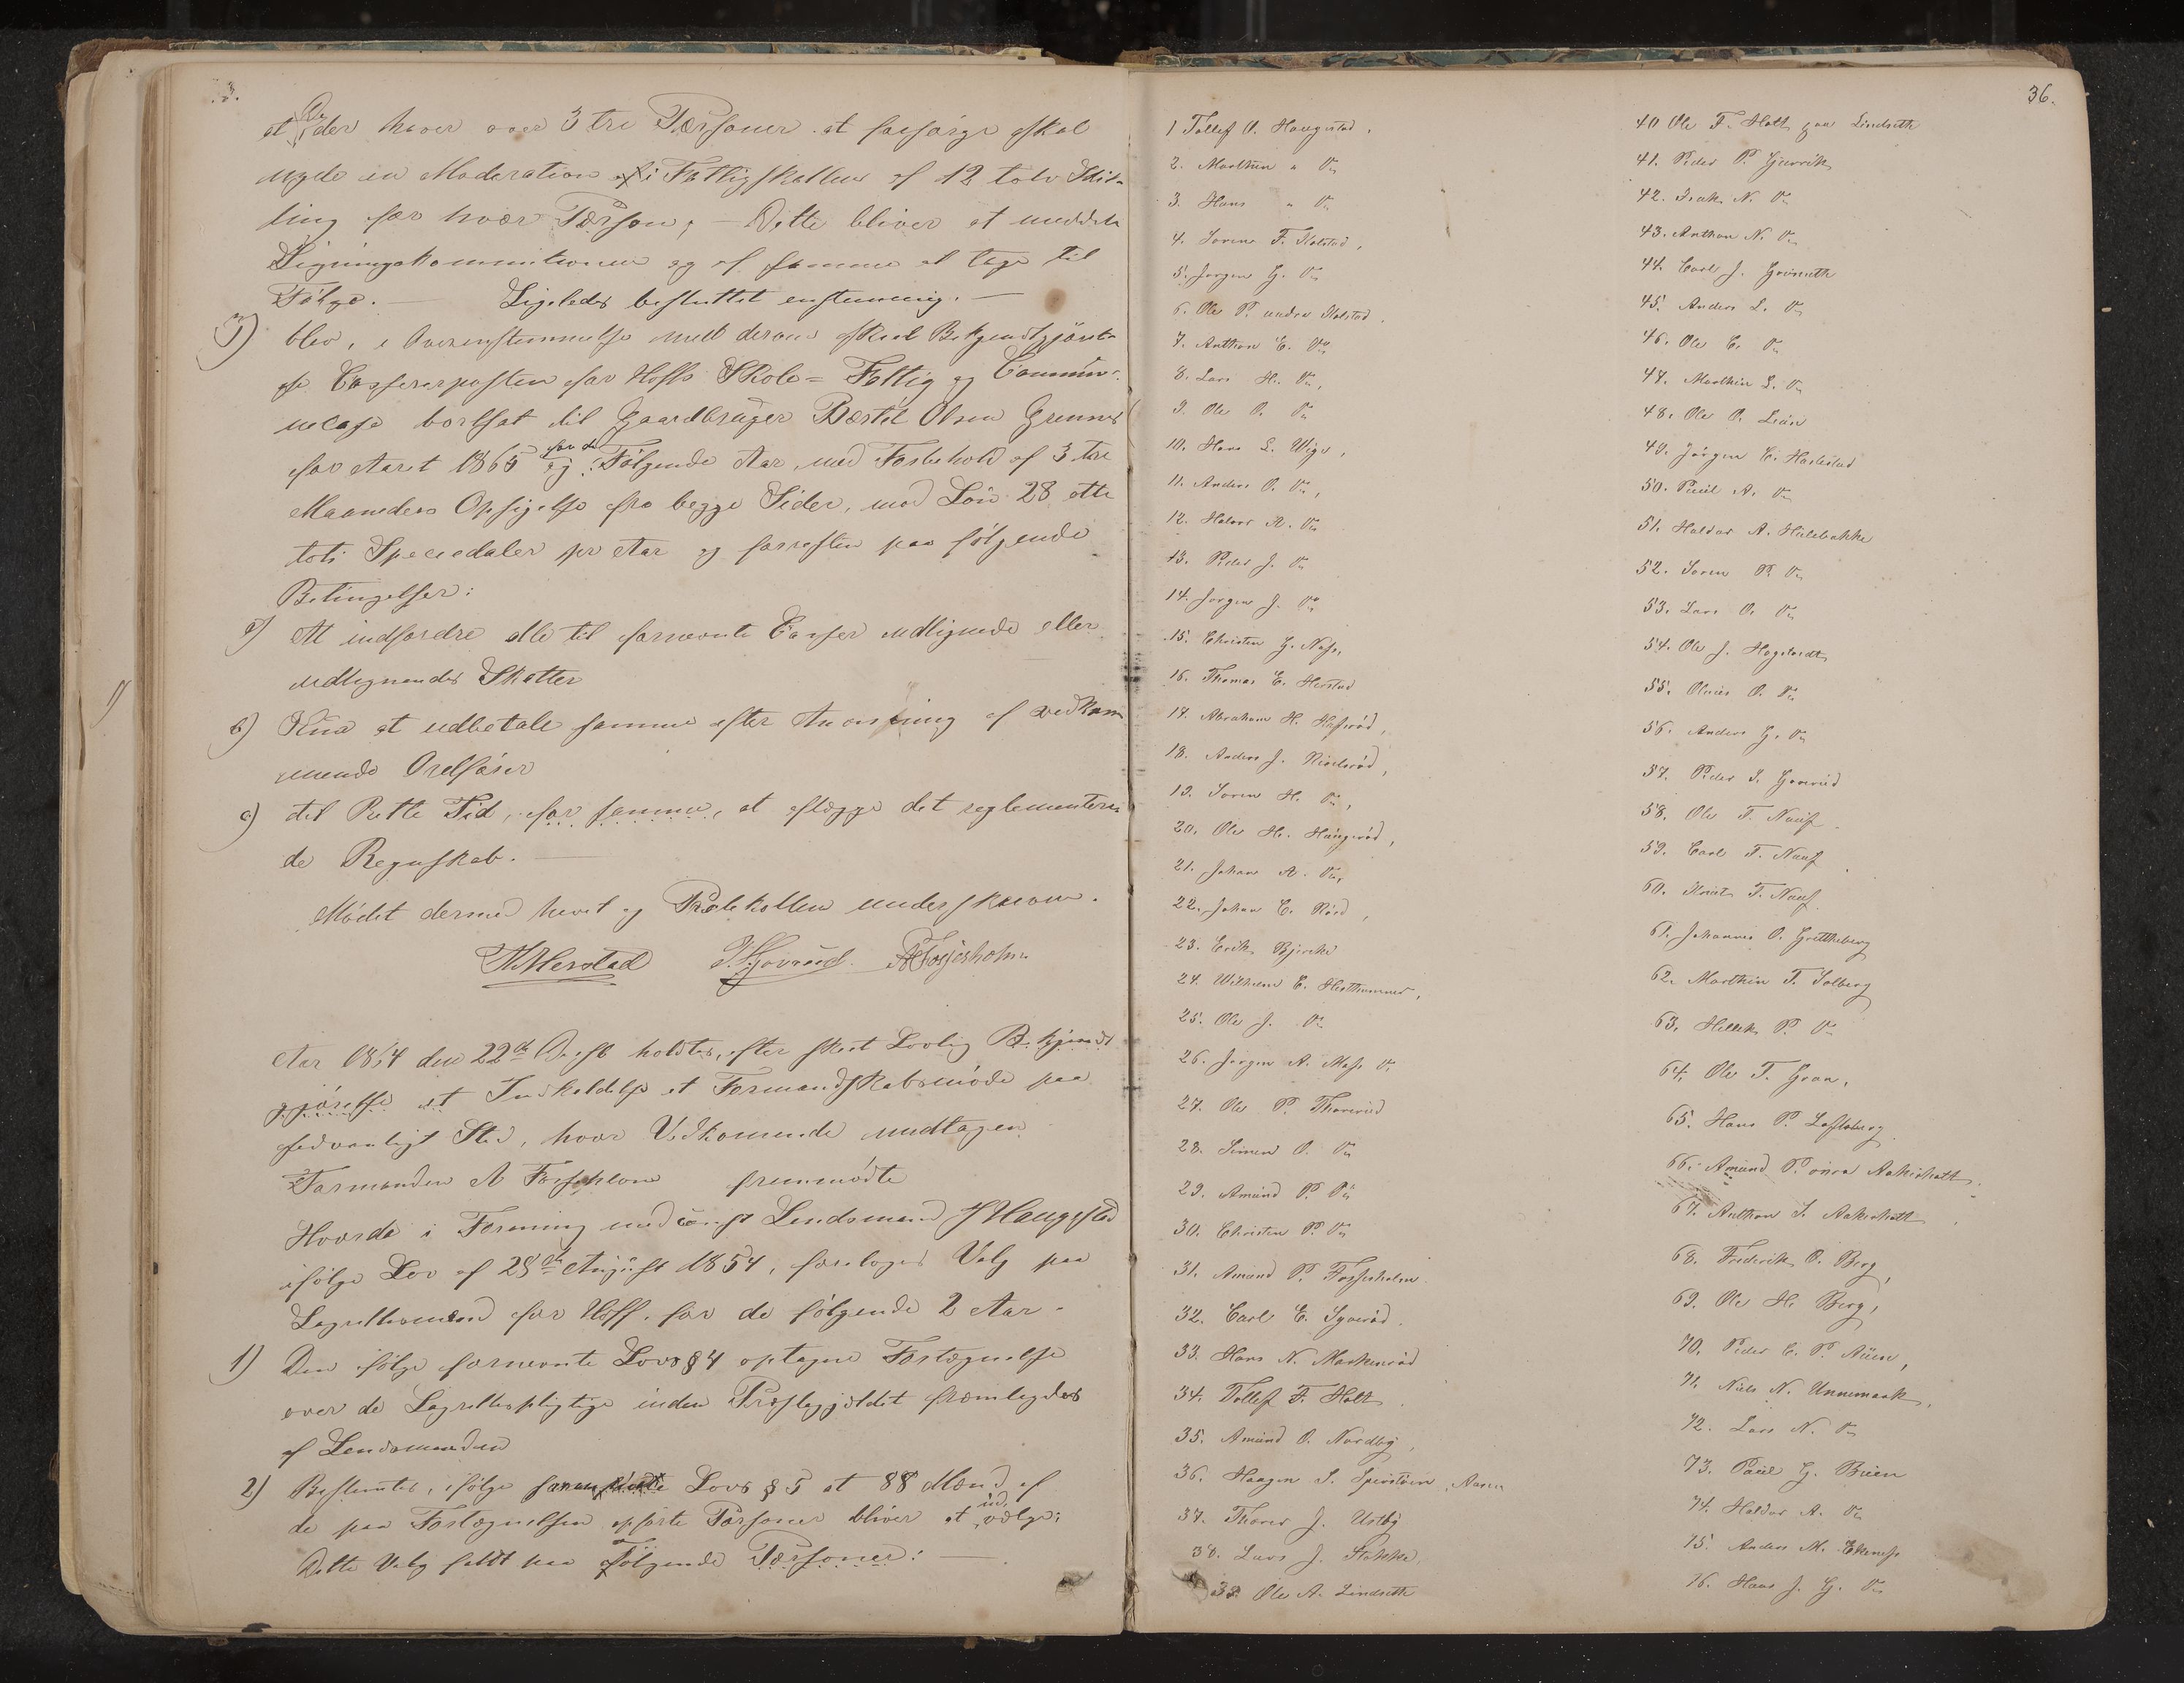 at der haver over 3 tre Personer at forsörge skal
nyde en Moderation i Fattigskatten af 12 tolv Skil-
ling for hver Person; — Dette bliver at meddele
Ligningskommitionen og af samme at tage til
Fölge. — Ligeledes besluttet enstemmig. —
3) blev, i Overenstemmelse med derom skeet Bekjendtgjörel-
se Cassererposten for Hoffs Skole= Fattig og Commu-
necasse bortsat til Gaardbruger Bertel Olsen Grennes
for Aaret 1865 og for de Fölgende Aar, med Forbehold af 3 tre
Maaneders Opsigelse fra begge Sider, mod Lön 28 otte
toti Speciedaler pr Aar og forresten paa fölgende
Betingelser:
a) At indfordre alle til fornevnte Casser udlignede eller
udlignendes Skatter
b) Kun at udbetale samme efter Anvisning af vedkom
mende Ordförer
c) til Rette Tid, for samme, at aflægge det reglementere-
de Regnskab. —
Mödet dermed hevet og Protokollen underskreven.
Herstad Gjövrud. A Fossesholm
Aar 1864 den 22de holdtes, efter skeet Lovlig Bekjendt
gjörelse et Formandskabsmöde paa
sedvanligt Sted, hvor Vedkomende undtagen
Formanden A Fossesholm fremmödte
Hvorda i Forening med const Lendsmand Haugestad
ifölge Lov af 28de August 1854, foretoges Valg paa
Lagrettesmænd for Hoff, for de fölgende 2 Aar.
1) Den ifölge fornevnte Lovs § 4 optagne Fortegnelse
over de Lagrettespligtige inden Præstegjeldet fremlagdes
af Lendsmanden
2) Bestemtes, ifölge Lovs § 5 at 88 Mænd af
de paa Fortegnelsen opförte Personer bliver at udvælge:
Dette Valg faldt paa Fölgende Personer: —
36.
1 Tollef O. Haugestad,
2. Marthin " Do
3. Hans " Do
4. Soren F. Holstad,
5. Jorgen G. Do
6. Ole P. nedre Holstad.
7. Anthon E. Do
8. Lars H. Do,
9. Ole O. Do
10. Hans L. Wiger,
11. Anders O. Do,
12. Halvor A. Do
13. Peder J. Do
14. Jorgen J. Do
15. Christen G. Næss,
16. Thomas E. Herstad
17. Abraham H. Hassröd,
18. Anders J. Röd,
19. Soren H. Do,
20. Ole H. Haugeröd,
21. Johan A. Do,
22. Johan C. Röed,
23. Erik Bjerche
24. Wilhelm C. Hesthammer,
25. Ole J. Do
26. Jorgen A. Do
27. Ole P. Thorerud
28. Simen O. Do
29. Amund P. Do
30. Christen P. Do
31. Amund P. Fossesholm
32. Carl C. Syveröd.
33. Hans N. Markeröd
34. Tollef F. Holt
35. Amund O. Nordby,
36. Haagen S.
37. Thorer J. Ustby
38. Lars J. Stokke,
39. Ole A. Lindseth
40 Ole F. Holt paa Lindseth
41. Peder P. Gjervik
42. Isak N. Do
43. Anthon N. Do
44. Carl J. Grönseth
45. Anders L. Do
46. Ole C. Do
47. Marthin L. Do
48. Ole O. Lian
49. Jörgen C. Harlestad
50. Paul A. Do
51. Haldor A. Hillebakke
52. Soren P. Do
53. Lars O. Do
54. Ole J. Hagetvedt
55. Olaus O. Do
56. Anders G. Do
57. Peder I. Gjverud
58. Ole T. Nauf
59. Carl T. Nauf
60. Knut T. Nauf
61. Johannes O. Grettheberg
62. Marthin T. Solberg
63. Hellek P. Do
64. Ole T. Gran,
65. Hans P. Lofsberg
66. Amund P. övra Aakeshatt
67. Anthon I. Aakeshatt
68. Frederik O. Berg,
69. Ole H. Berg,
70. Peder C. P. Auen,
71. Niels N. Unnemark,
72. Lars N. Do
73. Paul G. Buen
74. Haldor A. Do
75. Anders M. Ekenæs
76. Hans J. G. Do